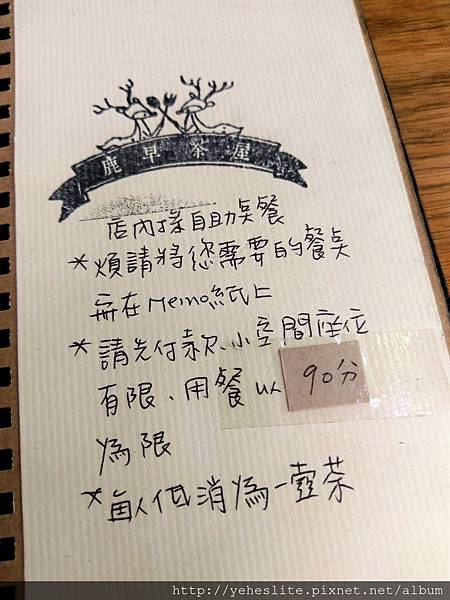 鹿早茶屋
店內採自助點餐
*煩請將您需要的餐點
寫在Memo紙上
*請先付款、小空間座位
有限、用餐以 90分
為限
*每人低消為一壺茶
http://yeheslite.pixnet.net/album